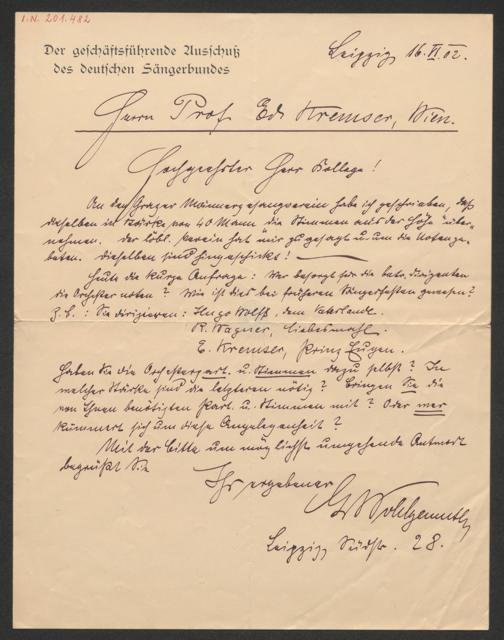 I.N. 201.482
Der geschäftsführende Ausschuß
des deutschen Sängerbundes
Leipzig, 16. VI. 02.
Herrn Prof. Ed. Kremser, Wien.
Hochgeehrter Herr Kollege!
An den Grazer Männergesangverein habe ich geschrieben, daß
dieselben in Stärke von 40 Mann die Stimmen aus der Höhe über-
nehmen. Der löbl. Verein hat mir zugesagt u. um die Notenge-
beten. Dieselben sind hingeschickt!
Heute die kurze Anfrage: Wer besorgt für die betr. Dirigenten
die Orchesternoten? Wie ist dies bei früheren Sängerfesten gewesen?
Z.B.: Sie dirigieren: Hugo Wolff, dem Vaterland.
R. Wagner, Liebesmahl.
E. Kremser, Prinz Eugen.
Haben Sie die Orchesterpart. u. Stimmen dazu selbst? In
welcher Stärke sind die letzteren nötig? Bringen Sie die
von Ihnen benötigten Part. u. Stimmen mit? Oder wer
kümmert sich um diese Angelegenheit?
Mit der Bitte um möglichst umgehende Antwort
begrüßt Sie
Ihr ergebener
G Wohlgemuth
Leipzig, Südstr. 28.